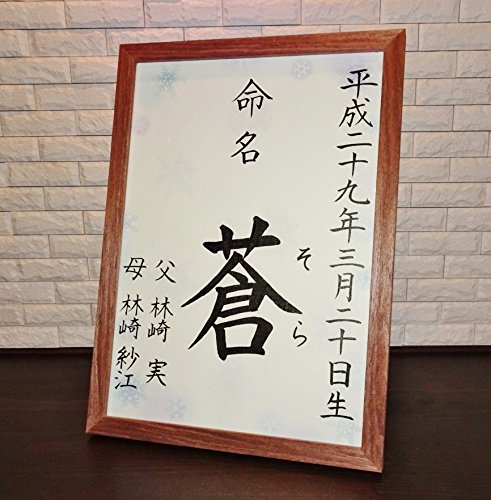 平成二十九年三月二十日生
命名
蒼
そら
父 林崎 実
母 林崎 紗江